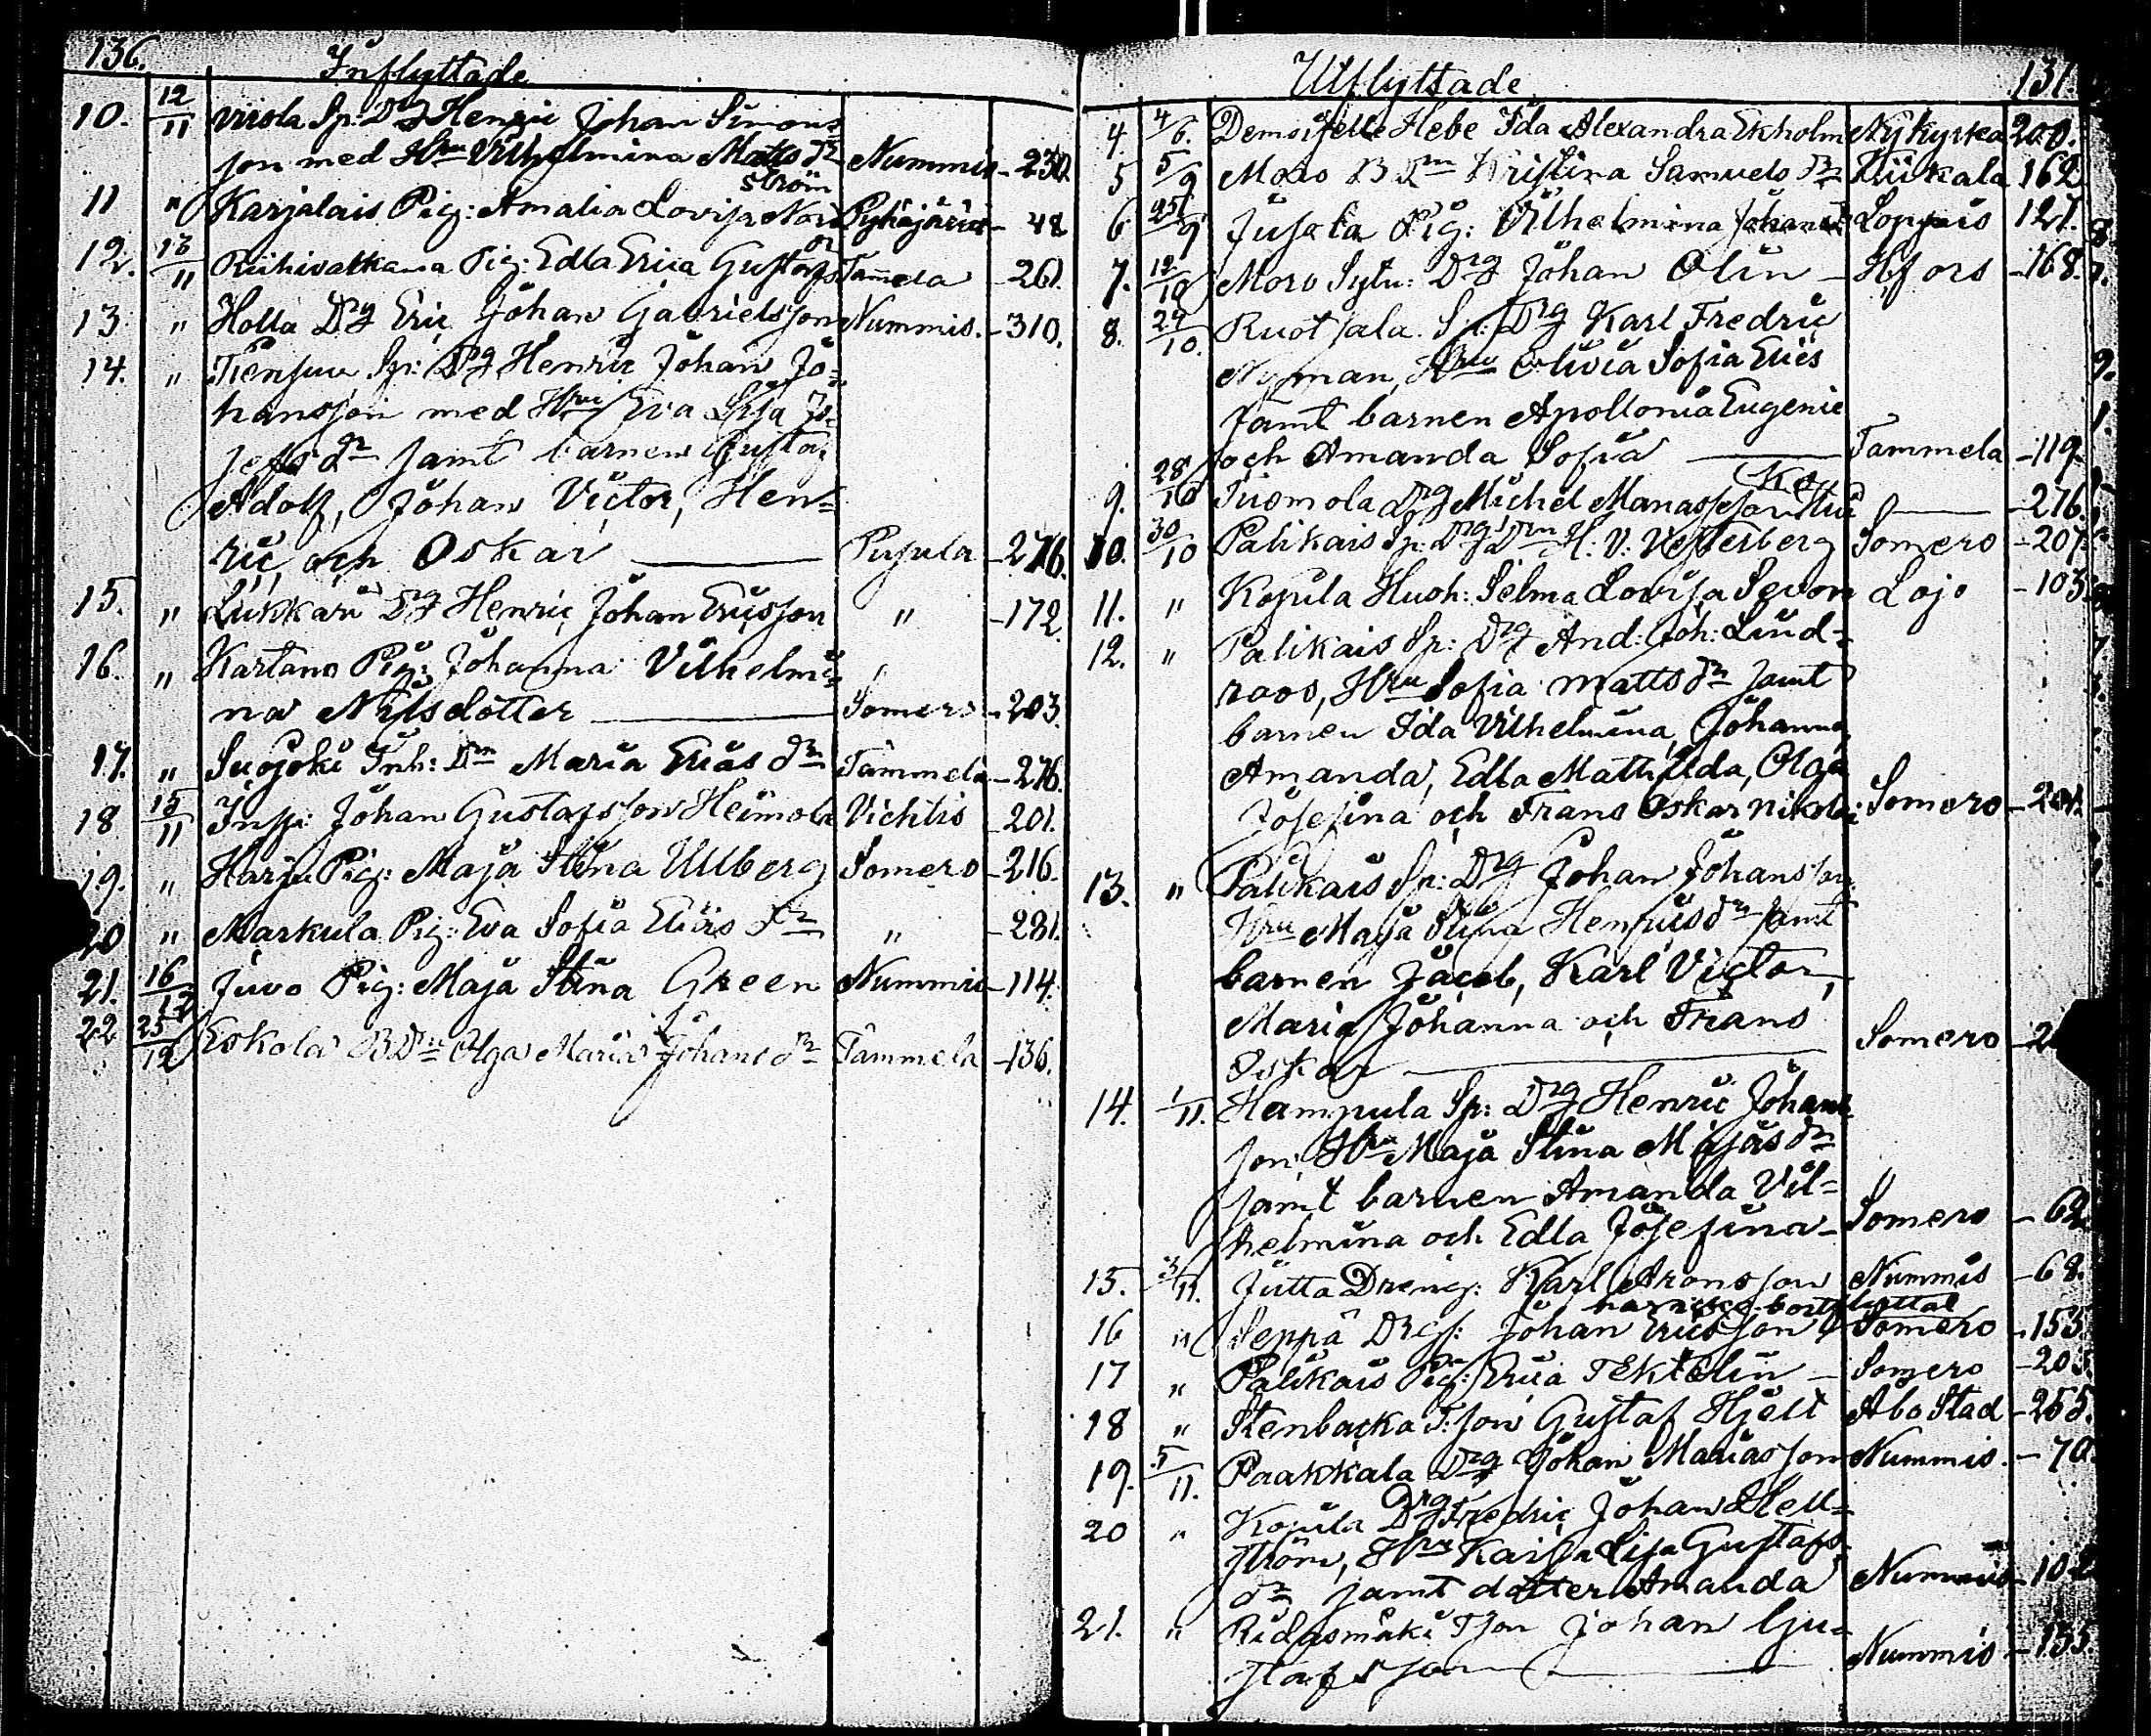 136.
Inflyttade
10. 12/11 Viiola Sp: Drg Henric Johan Simons-
son med Hru Vilhelmina Matts dr Nummis - 230.
ström
11 " Karjalais Pig: Amalia Lovisa Nord Pyhäjärvi - 48
12. 13/11 Riihivalkama Pig: Edla Erica Gustafs dr Tammela - 261.
13 " Holla Drg Eric Johan Gabrielsson Nummis. - 310.
14. " Sp: Drg Henric Johan Jo=
hansson med Hru Eva Lisa Jo=
sefs dr jamt barnen Gustaf
Adolf, Johan Victor, Hen=
ric och Oskar Pusula - 276.
15. " Liikkari Drg Henric Johan Ericsson " - 172
16. " Kartano Pig: Johanna Vilhelmi=
na Nilsdotter Somero - 203.
17. " Suojoki Inh: Drn Maria Erics dr Tammela - 276.
18 15/11 Insp: Johan Gustafsson Heimola Vichtis - 201.
19. " Harju Pig: Maja Stina Ullberg Somero - 216.
20 " Markula Pig: Eva Sofia Elias dr " - 281.
21. 16/12 Juvo Pig: Maja Stina Green Nummis - 114.
22 25/12 Eskola BDr Olga Maria Johans dr Tammela - 136.
Utflyttade
131.
4 4/6. Demoiselle Hebe Ida Alexandra Ekholm Nykyrka 200.
5 5/9 Moro BDrn Kristina Samuels dr Kiikala 162
6 25/9 Jusala Pig: Vilhelmina Johans dr Loppis 127.
7. 12/10 Moro Sytn: Drg Johan Olin - Hfors - 168.
8. 29/10. Ruotsala Sp: Drg Karl Fredric
Nyman, Hru Olivia Sofia Erics
jamt barnen Apollonia Eugenie
och Amanda Sofia Tammela - 119.
9. 28/10 Tuomola Drg Michel Manasson - 276.
10. 30/10 Palikais Sp: Drg H. V. Vesterberg Somero - 207.
11. " Kopila Hush: Selma Lovisa Sevon Lojo - 103.
12. " Palikais Sp: Drg And: Joh: Lind=
roos, Hru Sofia Matts dr jamt
barnen Ida Vilhelmina, Johanna
Amanda, Edla Mathilda, Olga
Josefina och Frans Oskar Nikolai Somero - 201.
13. " Palikais Sp: Drg Johan Johansson
Hru Maja Stina Henrics dr jamt
barnen Jacob, Karl Victor,
Maria Johanna och Frans
Oskar Somero - 2
14. 1/11. Hampula Sp: Drg Henric Johans
son, Hru Maja Stina dr
jamt barnen Amanda Vil=
helmina och Edla Josefina - Somero - 62
15. 3/11. Jutta Dreng: Karl Aronsson Nummis - 68.
16 " Seppä Drg: Johan Ericsson Somero - 153
17 " Palikais Pig: Erica Tektelin - Somero - 203
18 " Stenbacka T: son Gustaf Hjelt Åbo Stad - 255.
19. 5/11. Paakkala Drg Johan Mariasson Nummis. - 70.
20 " Kopila Drg Fredric Johan Hell=
ström, Hru Kaisa Lisa Gustafs
dr jamt dotter Amanda Nummis - 102
21. " Ridasmäki Tson Johan Gu=
stafsson Nummis - 155.